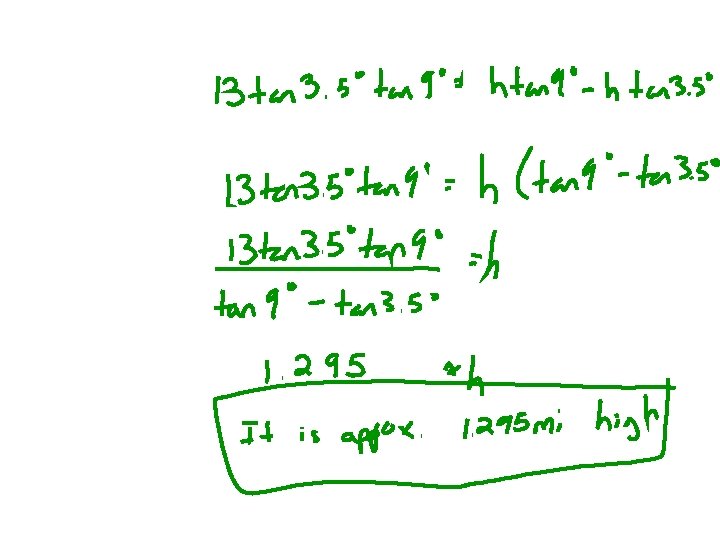 13 tan 3.5° tan 9° = h tan 9° - h tan 3.5°
13 tan 3.5° tan 9° = h (tan 9° - tan 3.5°
13 tan 3.5° tan 9° = h
tan 9° - tan 3.5°
1.295 ≈ h
It is appox. 1.295 mi high